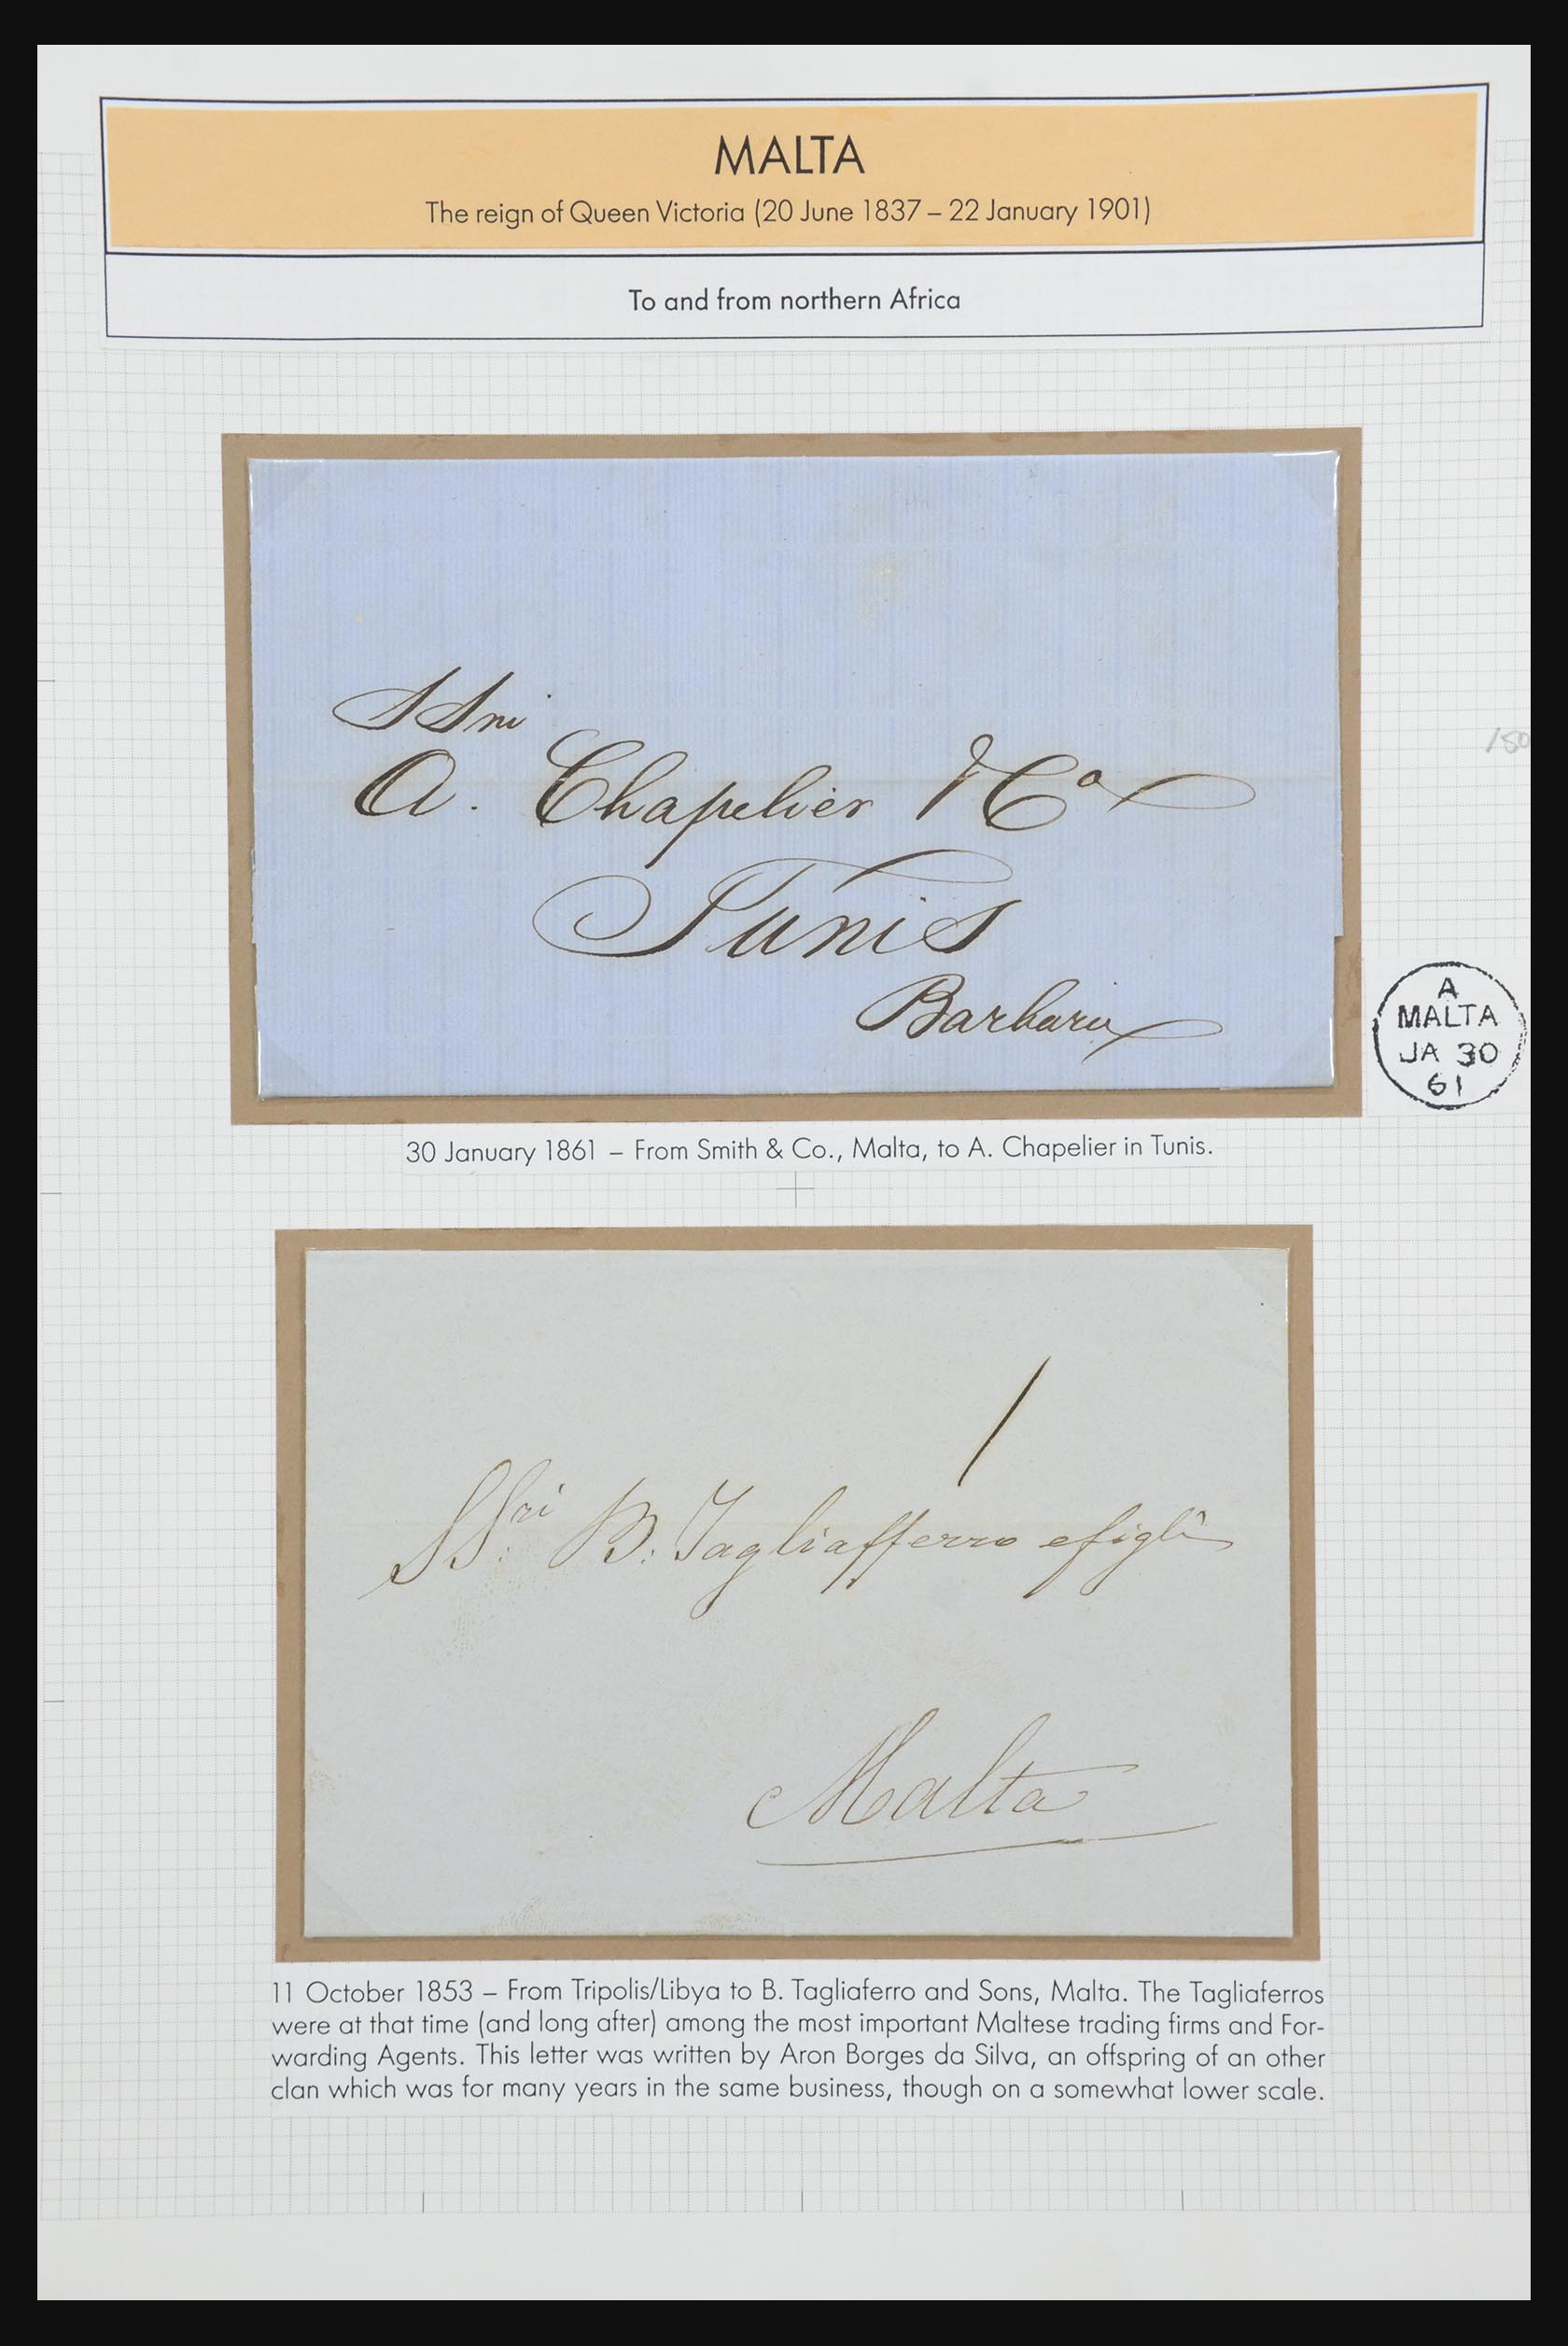 MALTA
The reign of Queen Victoria (20 June 1837 – 22 January 1901)
To and from northern Africa
SSri
A. Chapelier & Co
Tunis
Barbaria
A
MALTA
JA 30
61
30 January 1861 – From Smith & Co., Malta, to A. Chapelier in Tunis.
1
SSri B. Tagliafferro e figli
Malta
11 October 1853 – From Tripolis/Libya to B. Tagliaferro and Sons, Malta. The Tagliaferros
were at that time (and long after) among the most important Maltese trading firms and For-
warding Agents. This letter was written by Aron Borges da Silva, an offspring of an other
clan which was for many years in the same business, though on a somewhat lower scale.